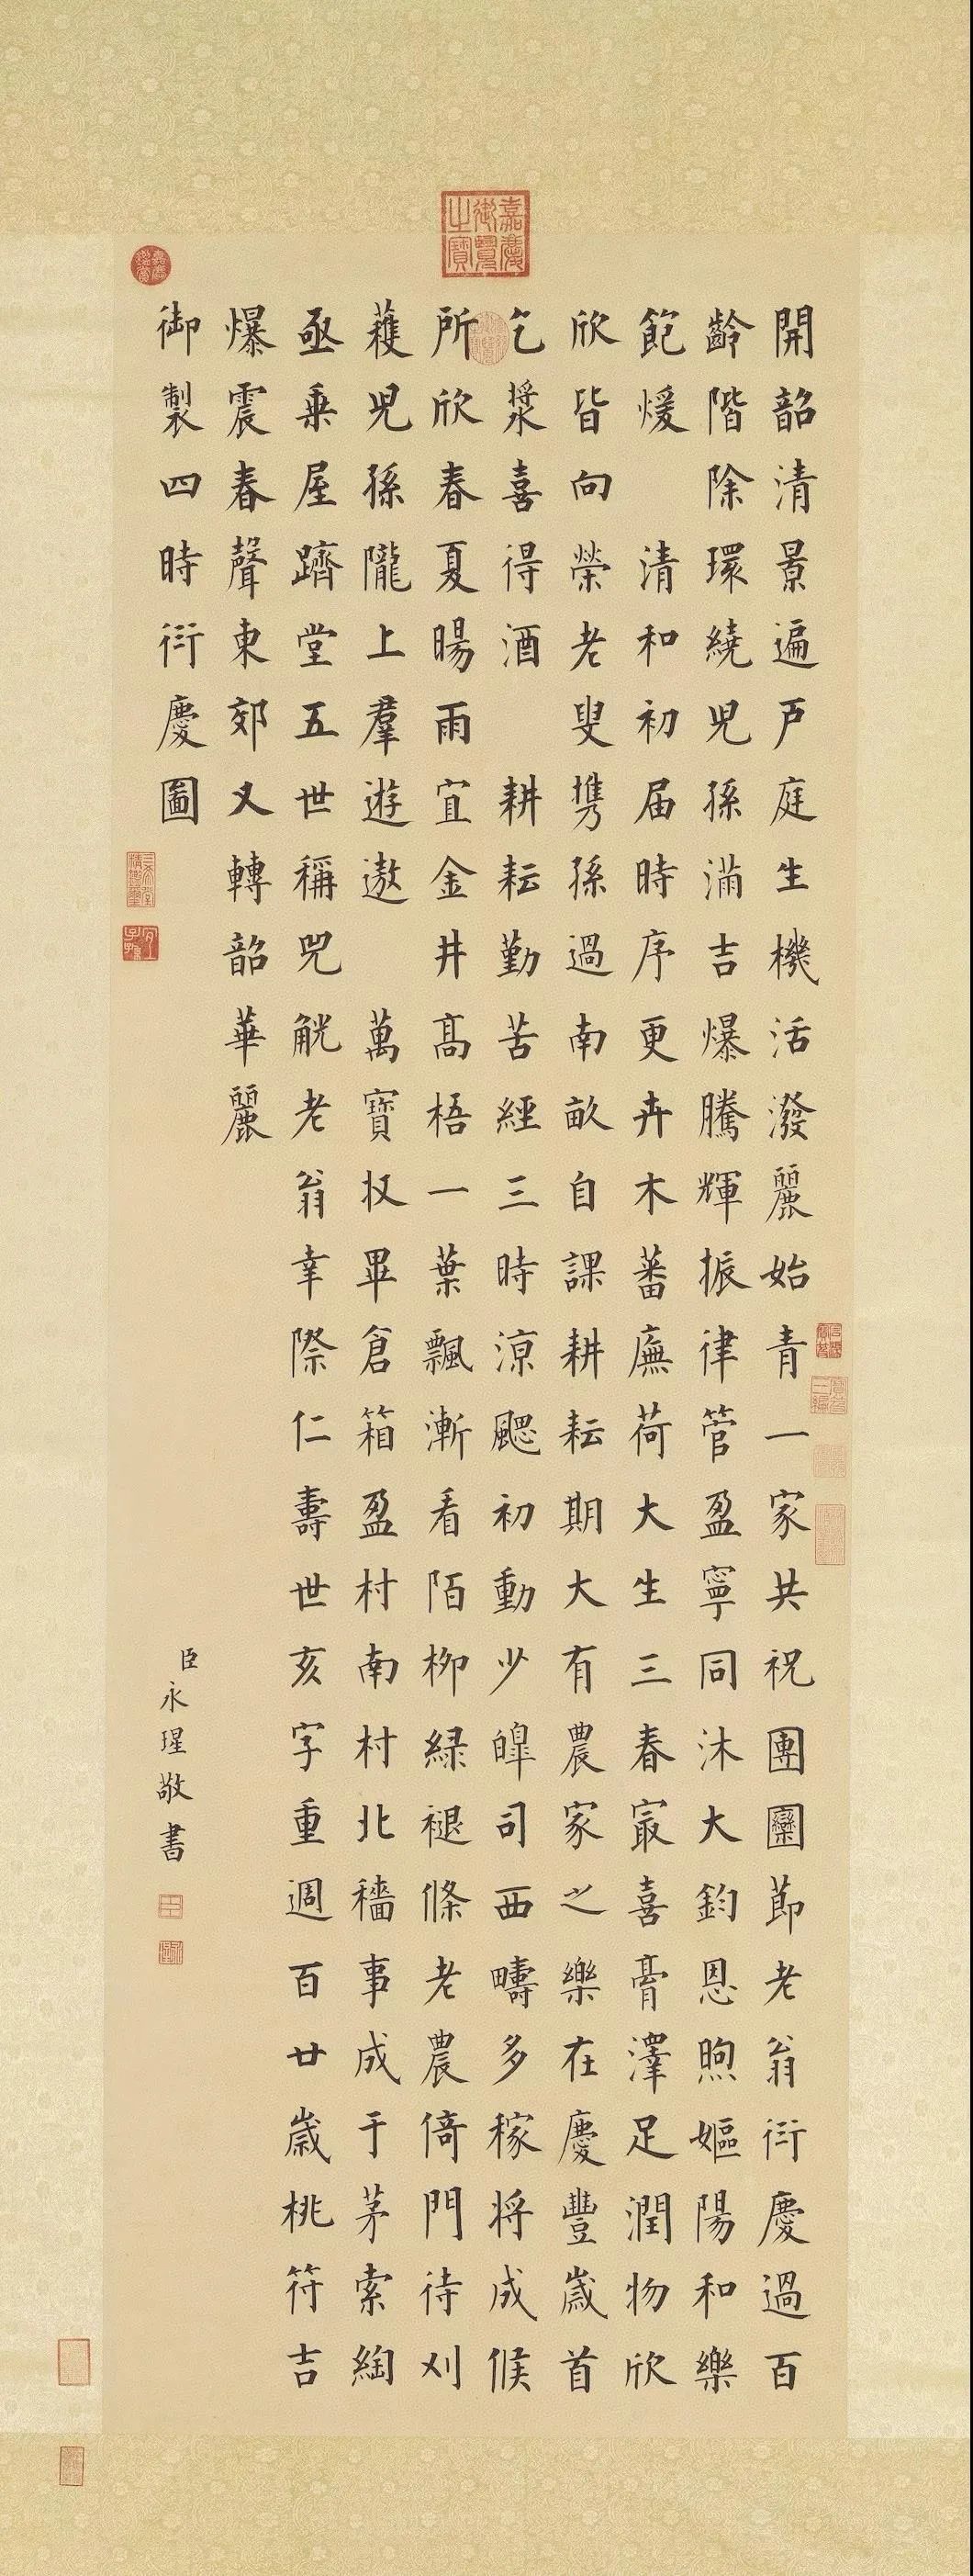 開韶清景遍戸庭生機活潑麗始青一家共祝團圞節老翁衍慶過百
齡階除環繞兒孫滿吉爆騰輝振律管盈寧同沐大鈞恩煦嫗陽和樂
飽煖 清和初届時序更卉木蕃廡荷大生三春冣喜膏澤足潤物欣
欣皆向榮老叟攜孫過南畝自課耕耘期大有農家之樂在慶豐歲首
乞漿喜得酒 耕耘勤苦經三時涼颸初動少皞司西疇多稼将成候
所欣春夏暘雨宜金井高梧一葉飄漸看陌柳緑褪條老農倚門待刈
穫兒孫隴上羣遊遨 萬寶収畢倉箱盈村南村北穡事成于茅索綯
亟乗屋躋堂五世稱兕觥老翁幸際仁壽世亥字重週百廿歲桃符吉
爆震春聲東郊又轉韶華麗
御製四時衍慶圖
臣永瑆敬書
嘉慶御覽之寶